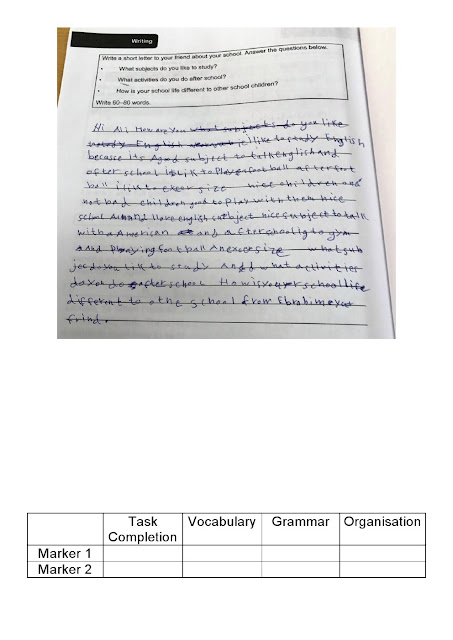 Writing
Write a short letter to your friend about your school. Answer the questions below.
• What subjects do you like to study?
• What activities do you do after school?
• How is your school life different to other school children?
Write 60–80 words.
Hi Ali How are you what subjects do you like
study English I like to study English
because its A good subject to talk English and
after school I Lik to Play a foot ball after foot
ball i lik to excer size nice children and
not bad children good to play with them nice
school And I love english subject nice subject to talk
with a American and after school I go to gym
and Playing foot ball An exersize what sub
ject do you Lik to study And what activities
do you do after school How is your school life
different to othe school from Ibrahim your
frind.
Task Completion Vocabulary Grammar Organisation
Marker 1
Marker 2